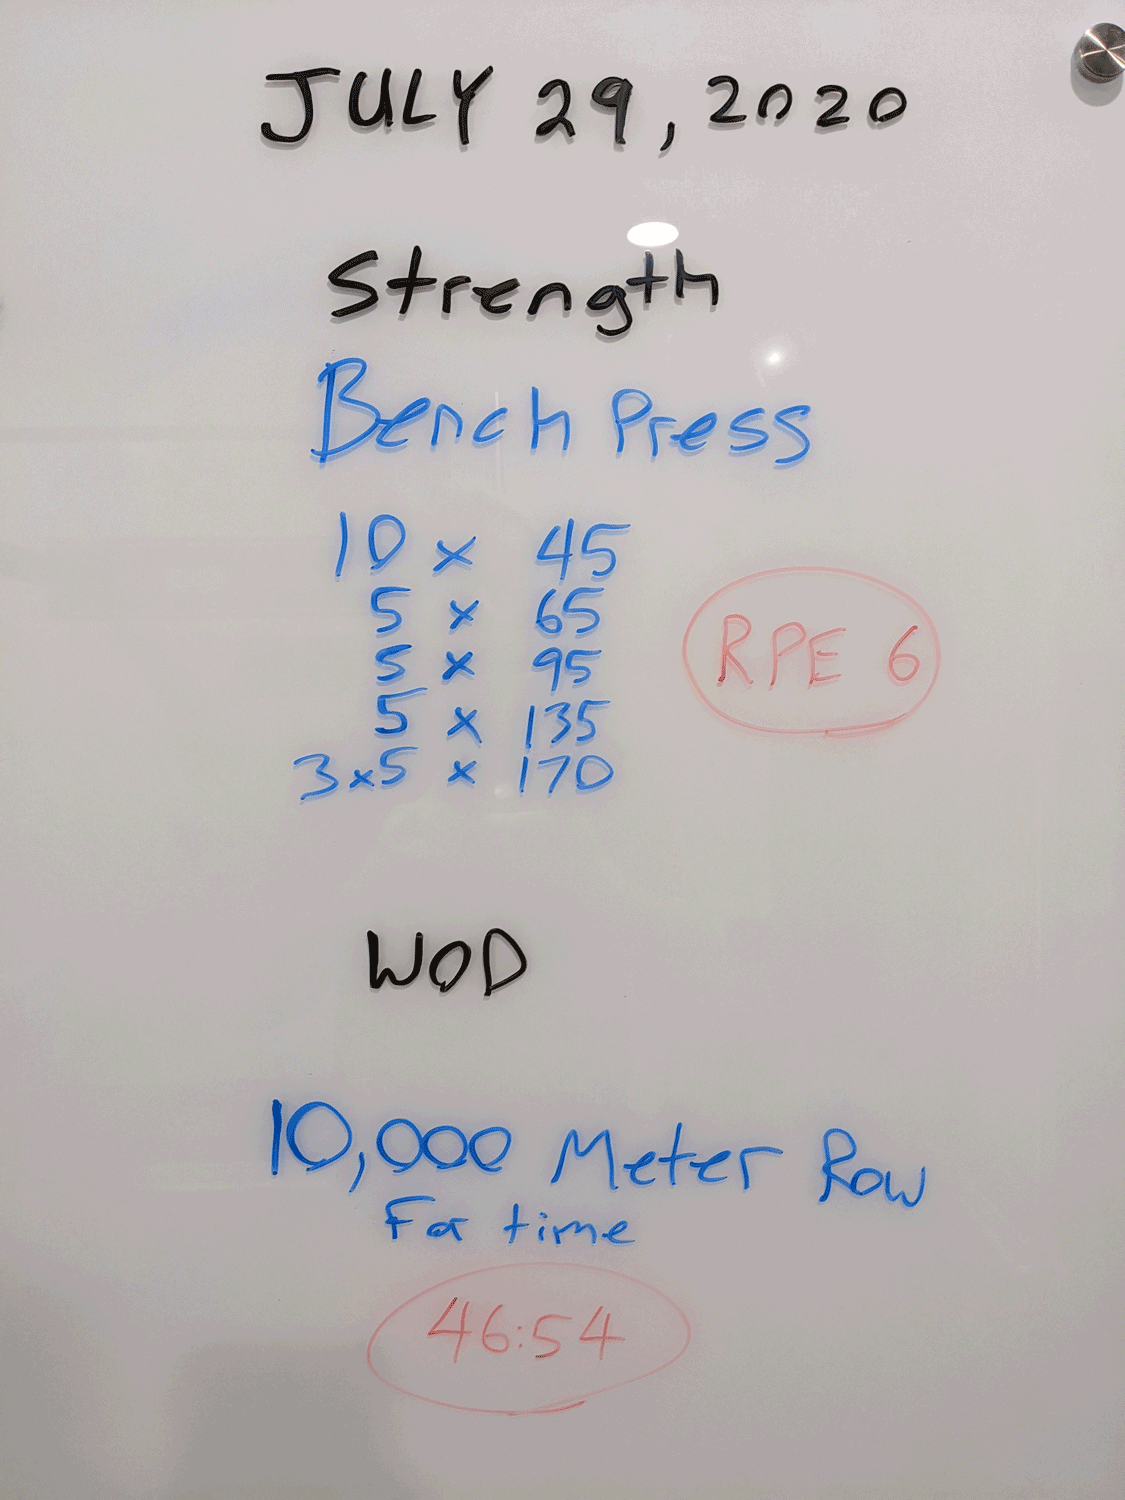 JULY 29, 2020
Strength
Bench Press
10 x 45
5 x 65
5 x 95
5 x 135
3x5 x 170
RPE 6
WOD
10,000 Meter Row
For time
46:54